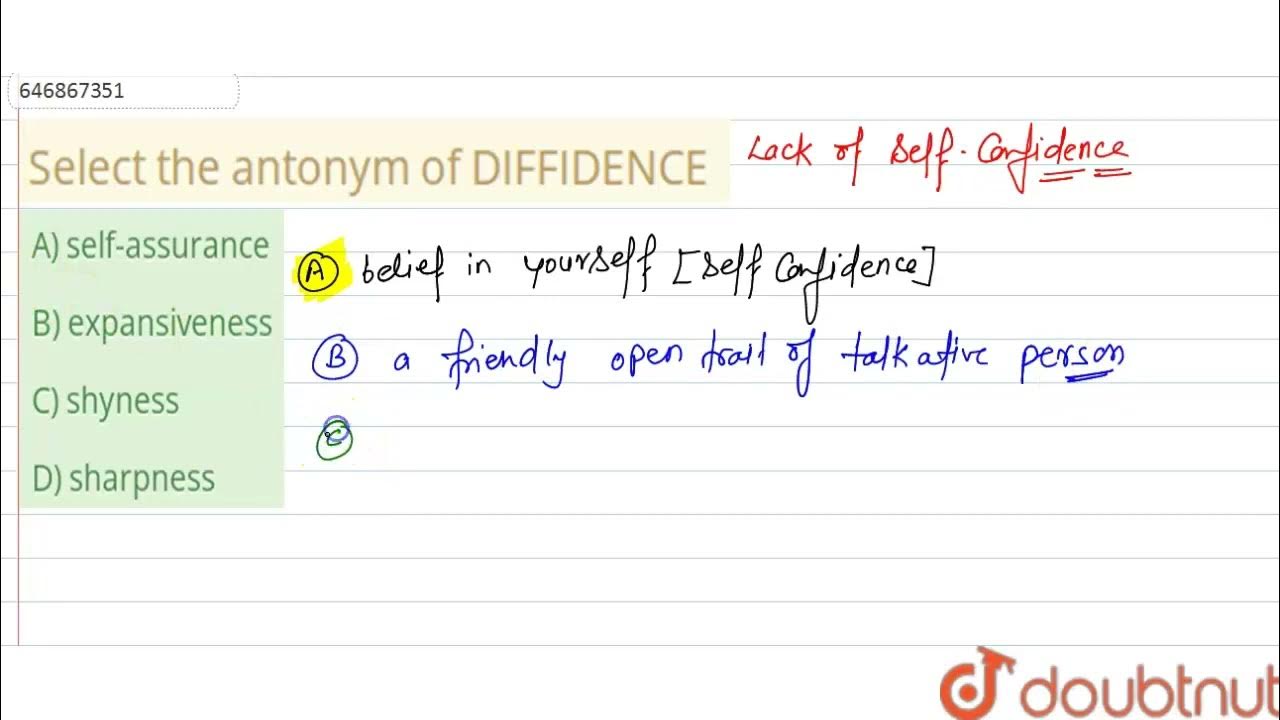 646867351
Select the antonym of DIFFIDENCE
Lack of Self-Confidence
A) self-assurance
A belief in yourself [Self Confidence]
B) expansiveness
B a friendly open trait of talkative person
C) shyness
C
D) sharpness
doubtnut